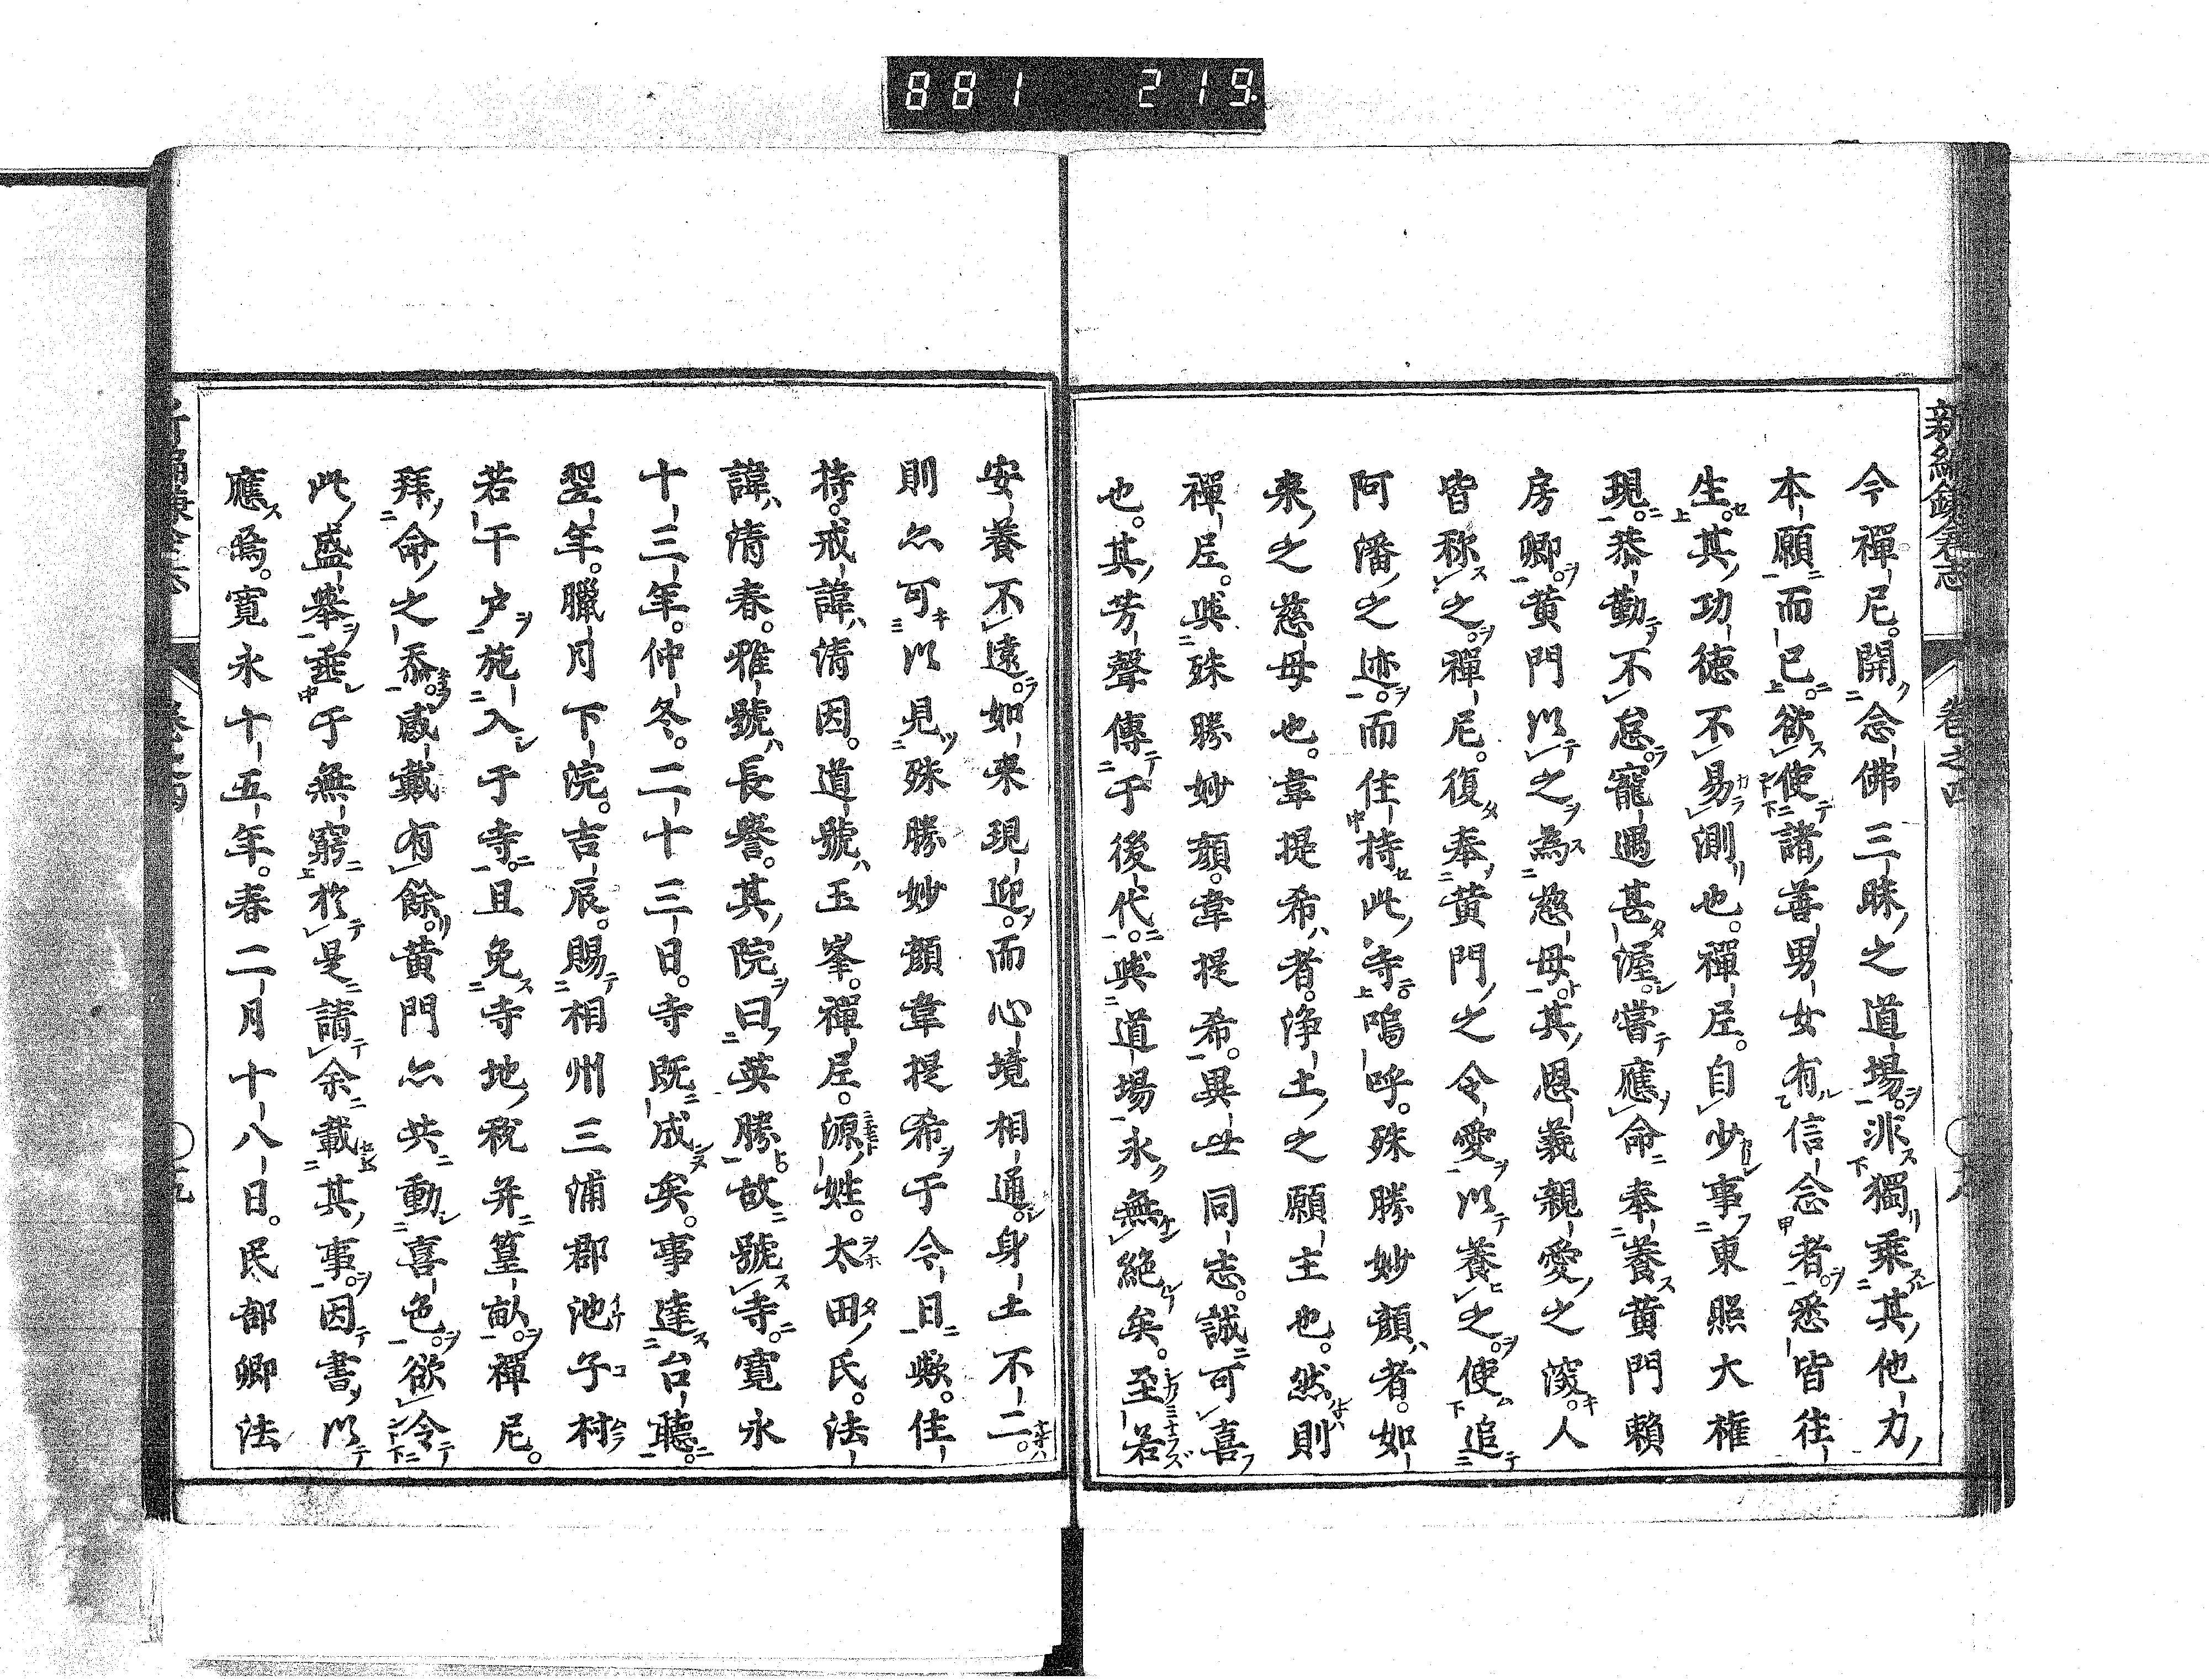 881 219
新編鎌倉志 卷之四
今禪尼。開念佛三昧之道場。非獨乘其他力
本願而已。欲使諸善男女有信念者。悉皆往
生。其功德不易測也。禪尼。自少事東照大權
現。恭勤不怠。寵遇甚渥。嘗應命奉養黃門賴
房卿。黃門以之為慈母。其恩義親愛之深。人
皆称之。禪尼。復奉黃門之令愛。以養之。使追
阿潘之迹。而住持此寺。嗚呼。殊勝妙顏者。如
來之慈母也。韋提希者。淨土之願主也。然則
禪尼。與殊勝妙顏。韋提希。異世同志。誠可喜
也。其芳聲傳于後代。與道場永無絶矣。至若
安養不遠。如來現迎。而心境相通。身土不二。
則亦可以見殊勝妙顏韋提希于今日歟。住
持。戒諱清因。道號玉峯。禪尼。源姓。太田氏。法
諱清春。雅號長譽。其院曰英勝。故號寺。寬永
十三年。仲冬。二十三日。寺既成矣。事達台聽。
翌年。臘月下院。吉辰。賜相州三浦郡池子村
若干戶。施入于寺。且免寺地税并篁畝。禪尼。
拜命之忝。感戴有餘。黃門亦共動喜色。欲令
此盛舉垂于無窮。於是請余載其事。因書以
應焉。寬永十五年。春二月十八日。民部卿法